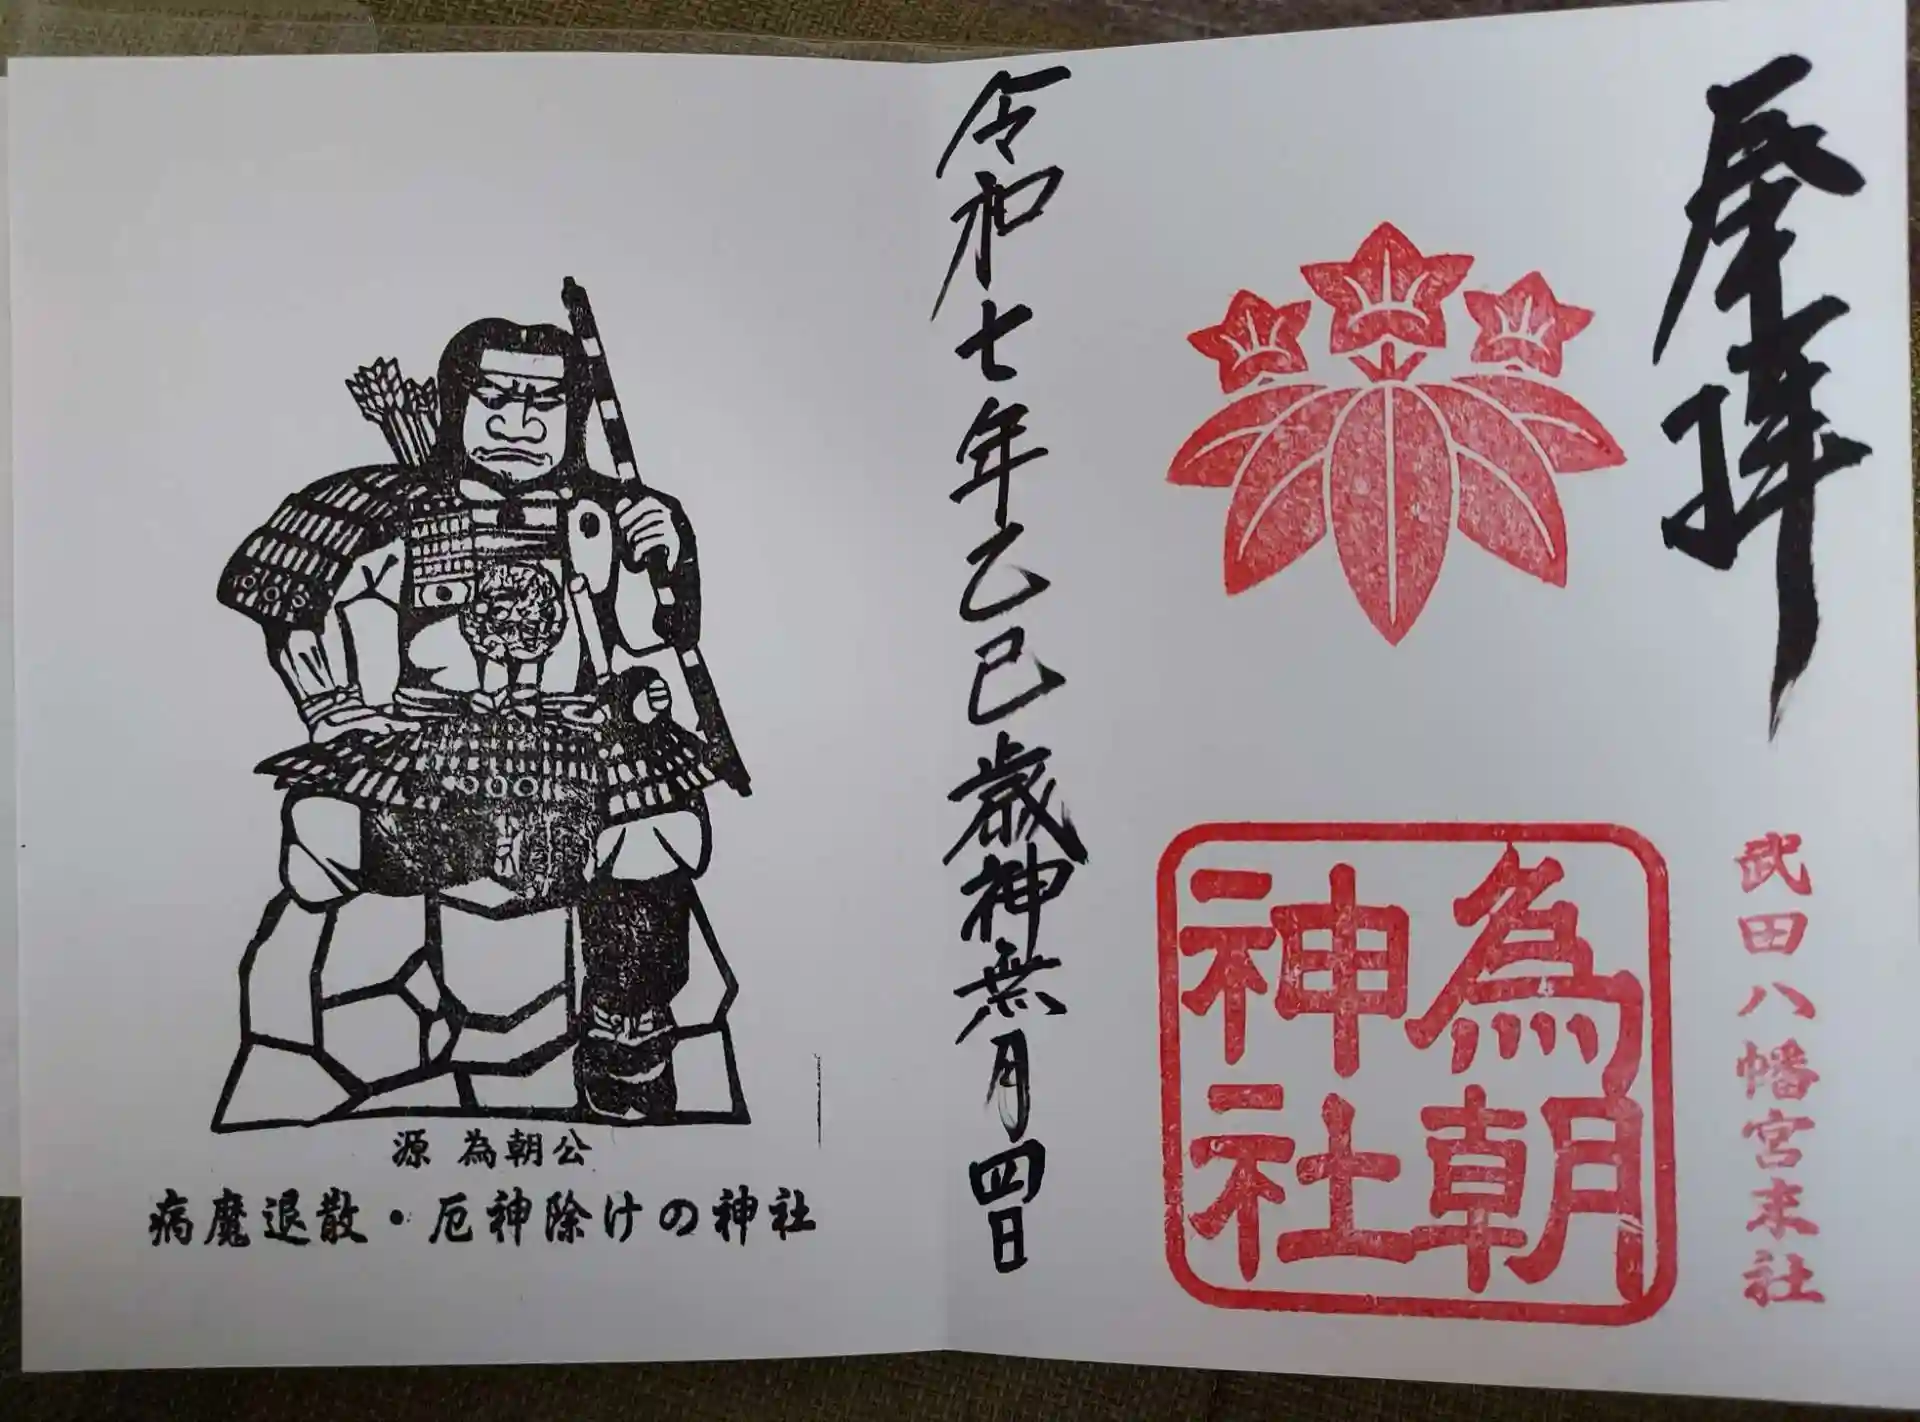 奉拝
武田八幡宮末社
為朝神社
令和七年乙巳歳神無月四日
源 為朝公
病魔退散・厄神除けの神社